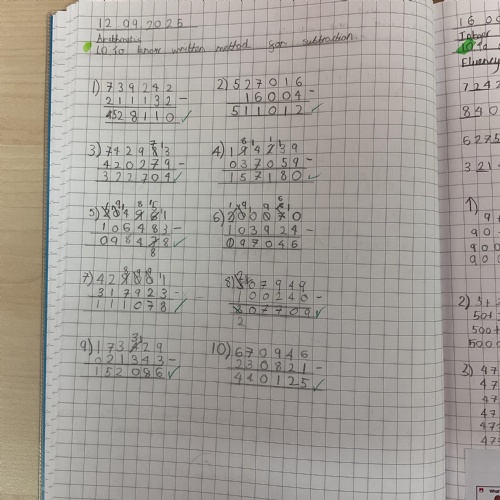 12.09.2025
Arithmetic
LO To know written method for subtraction.
1) 739242
211132 -
528110
2) 527016
16004 -
511012
3) 742983
420279 -
322704
4) 194239
037059 -
157180
5) 204961
106483 -
098478
8
6) 200970
103924 -
097046
7) 429001
317923 -
111078
8) 307949
100240 -
07709
2
9) 173429
021343 -
152086
10) 670946
230821 -
440125
1600
Integer
LO To
Fluency
7242
840
6275
3214
1)
9+
90+
900
900
2) 5+
50+
500+
5000
3) 47
47
47
47
47